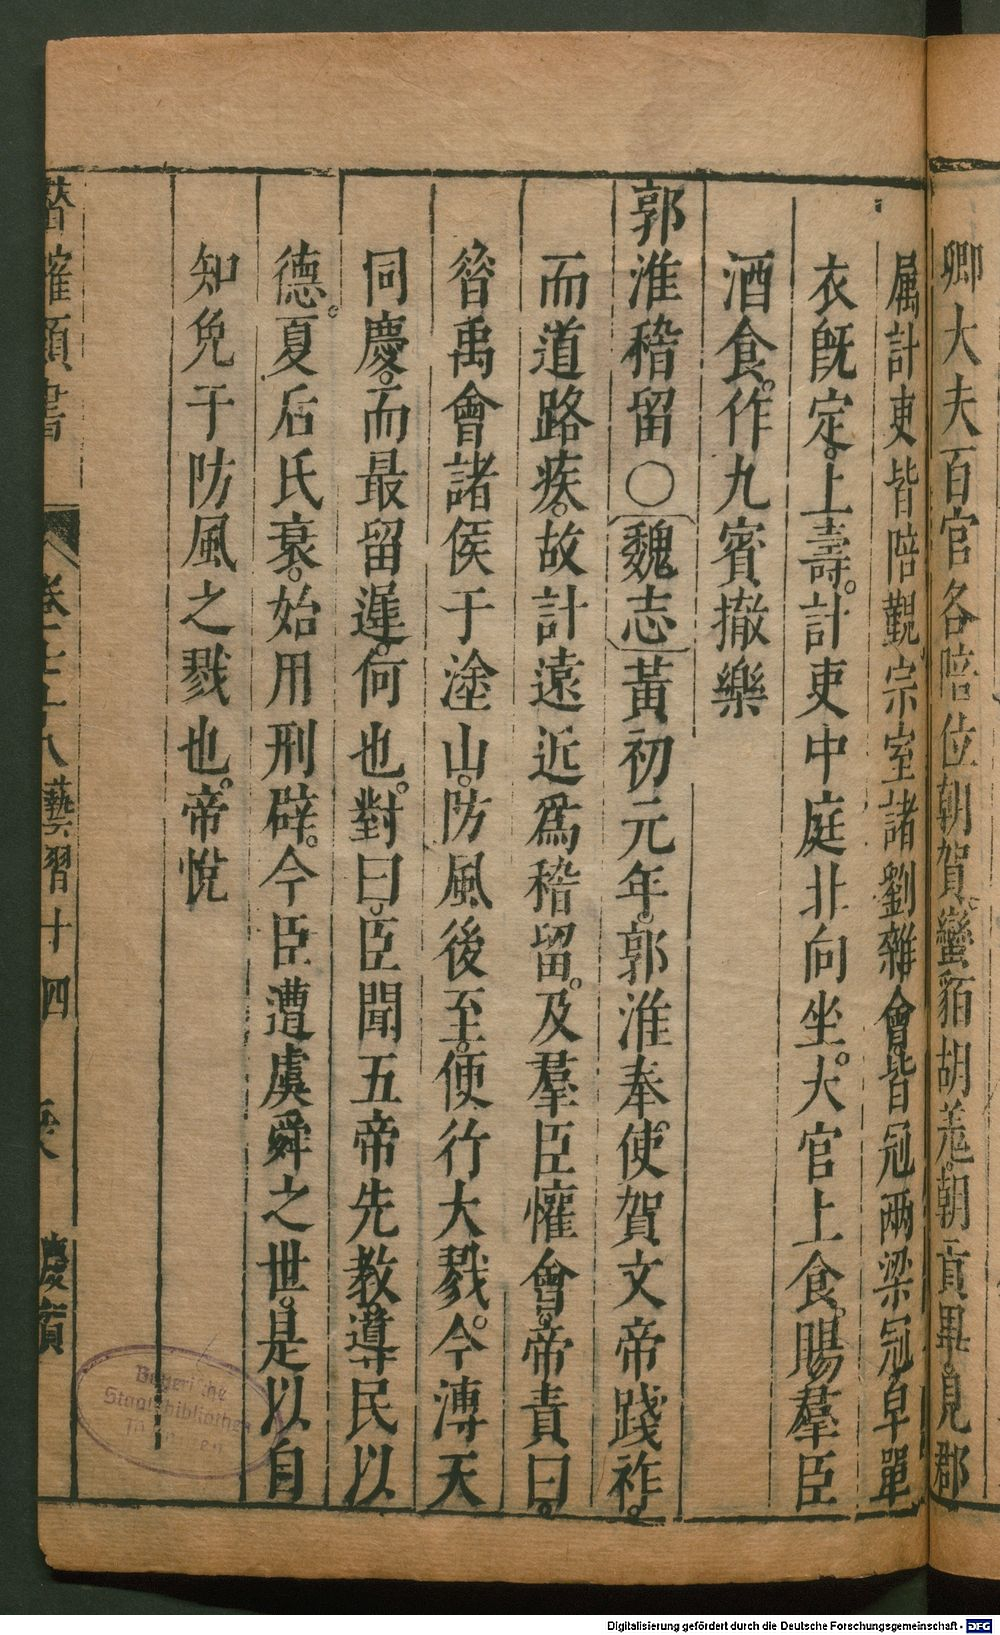 卿大夫百官各陪位朝賀。蠻貊胡羗。朝貢異見郡
属計吏皆陪覲宗室諸劉雜會。皆冠兩梁冠皁單
衣旣定。上壽。計吏中庭北向坐。大官上食。賜羣臣
酒食。作九賓撤樂
郭淮稽留○魏志黃初元年。郭淮奉使賀文帝踐祚。
而道路疾。故計遠近爲稽留。及羣臣懽會。帝責曰。
昝禹會諸侯于塗山。防風後至。便行大戮。今溥天
同慶。而最留遲。何也。對曰。臣聞五帝先教導民以
德。夏后氏衰。始用刑辟。今臣遭虞舜之世。是以自
知免于防風之戮也。帝悅
潛確類書 卷七十八 藝習十四 慶賀
Bayerische
Staatsbibliothek
München
Digitalisierung gefördert durch die Deutsche Forschungsgemeinschaft - DFG